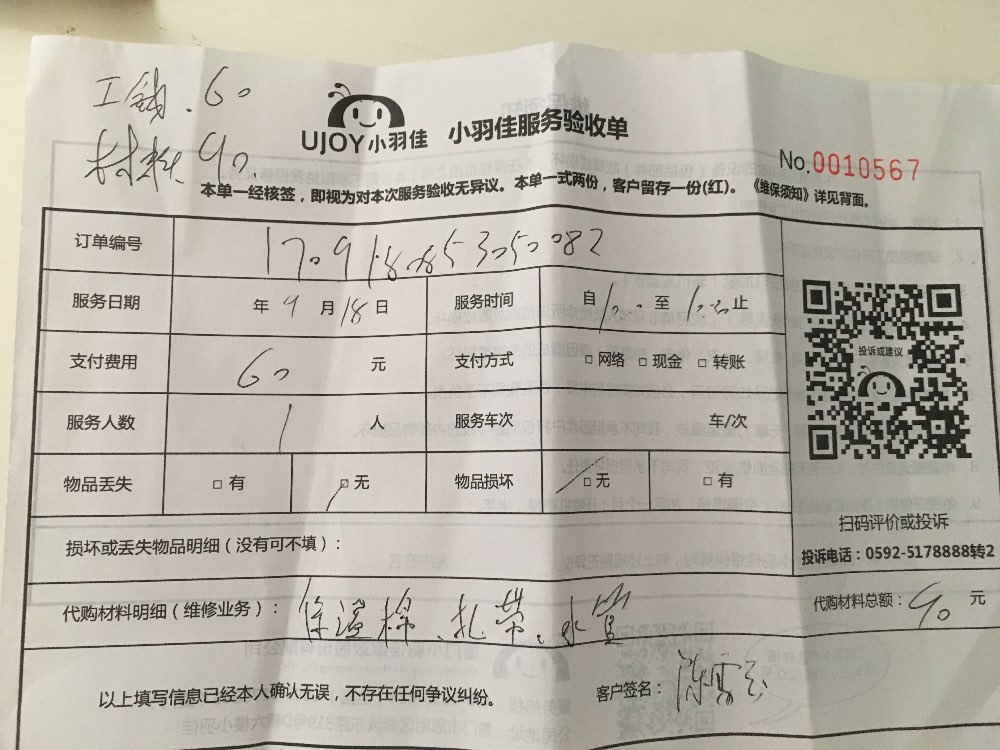 工钱.60
材料90.
UJOY小羽佳 小羽佳服务验收单
No.0010567
本单一经核签，即视为对本次服务验收无异议。本单一式两份，客户留存一份(红)。《维保须知》详见背面。
订单编号
服务日期 年 9 月 18 日 服务时间 自 至 止
支付费用 60 元 支付方式 □ 网络 □ 现金 □ 转账
服务人数 1 人 服务车次 车/次
物品丢失 □ 有 □ 无 物品损坏 □ 无 □ 有
投诉或建议
扫码评价或投诉
投诉电话：0592-5178888转2
损坏或丢失物品明细（没有可不填）：
代购材料明细（维修业务）： 保温棉、扎带、水管 代购材料总额： 90 元
以上填写信息已经本人确认无误，不存在任何争议纠纷。 客户签名：